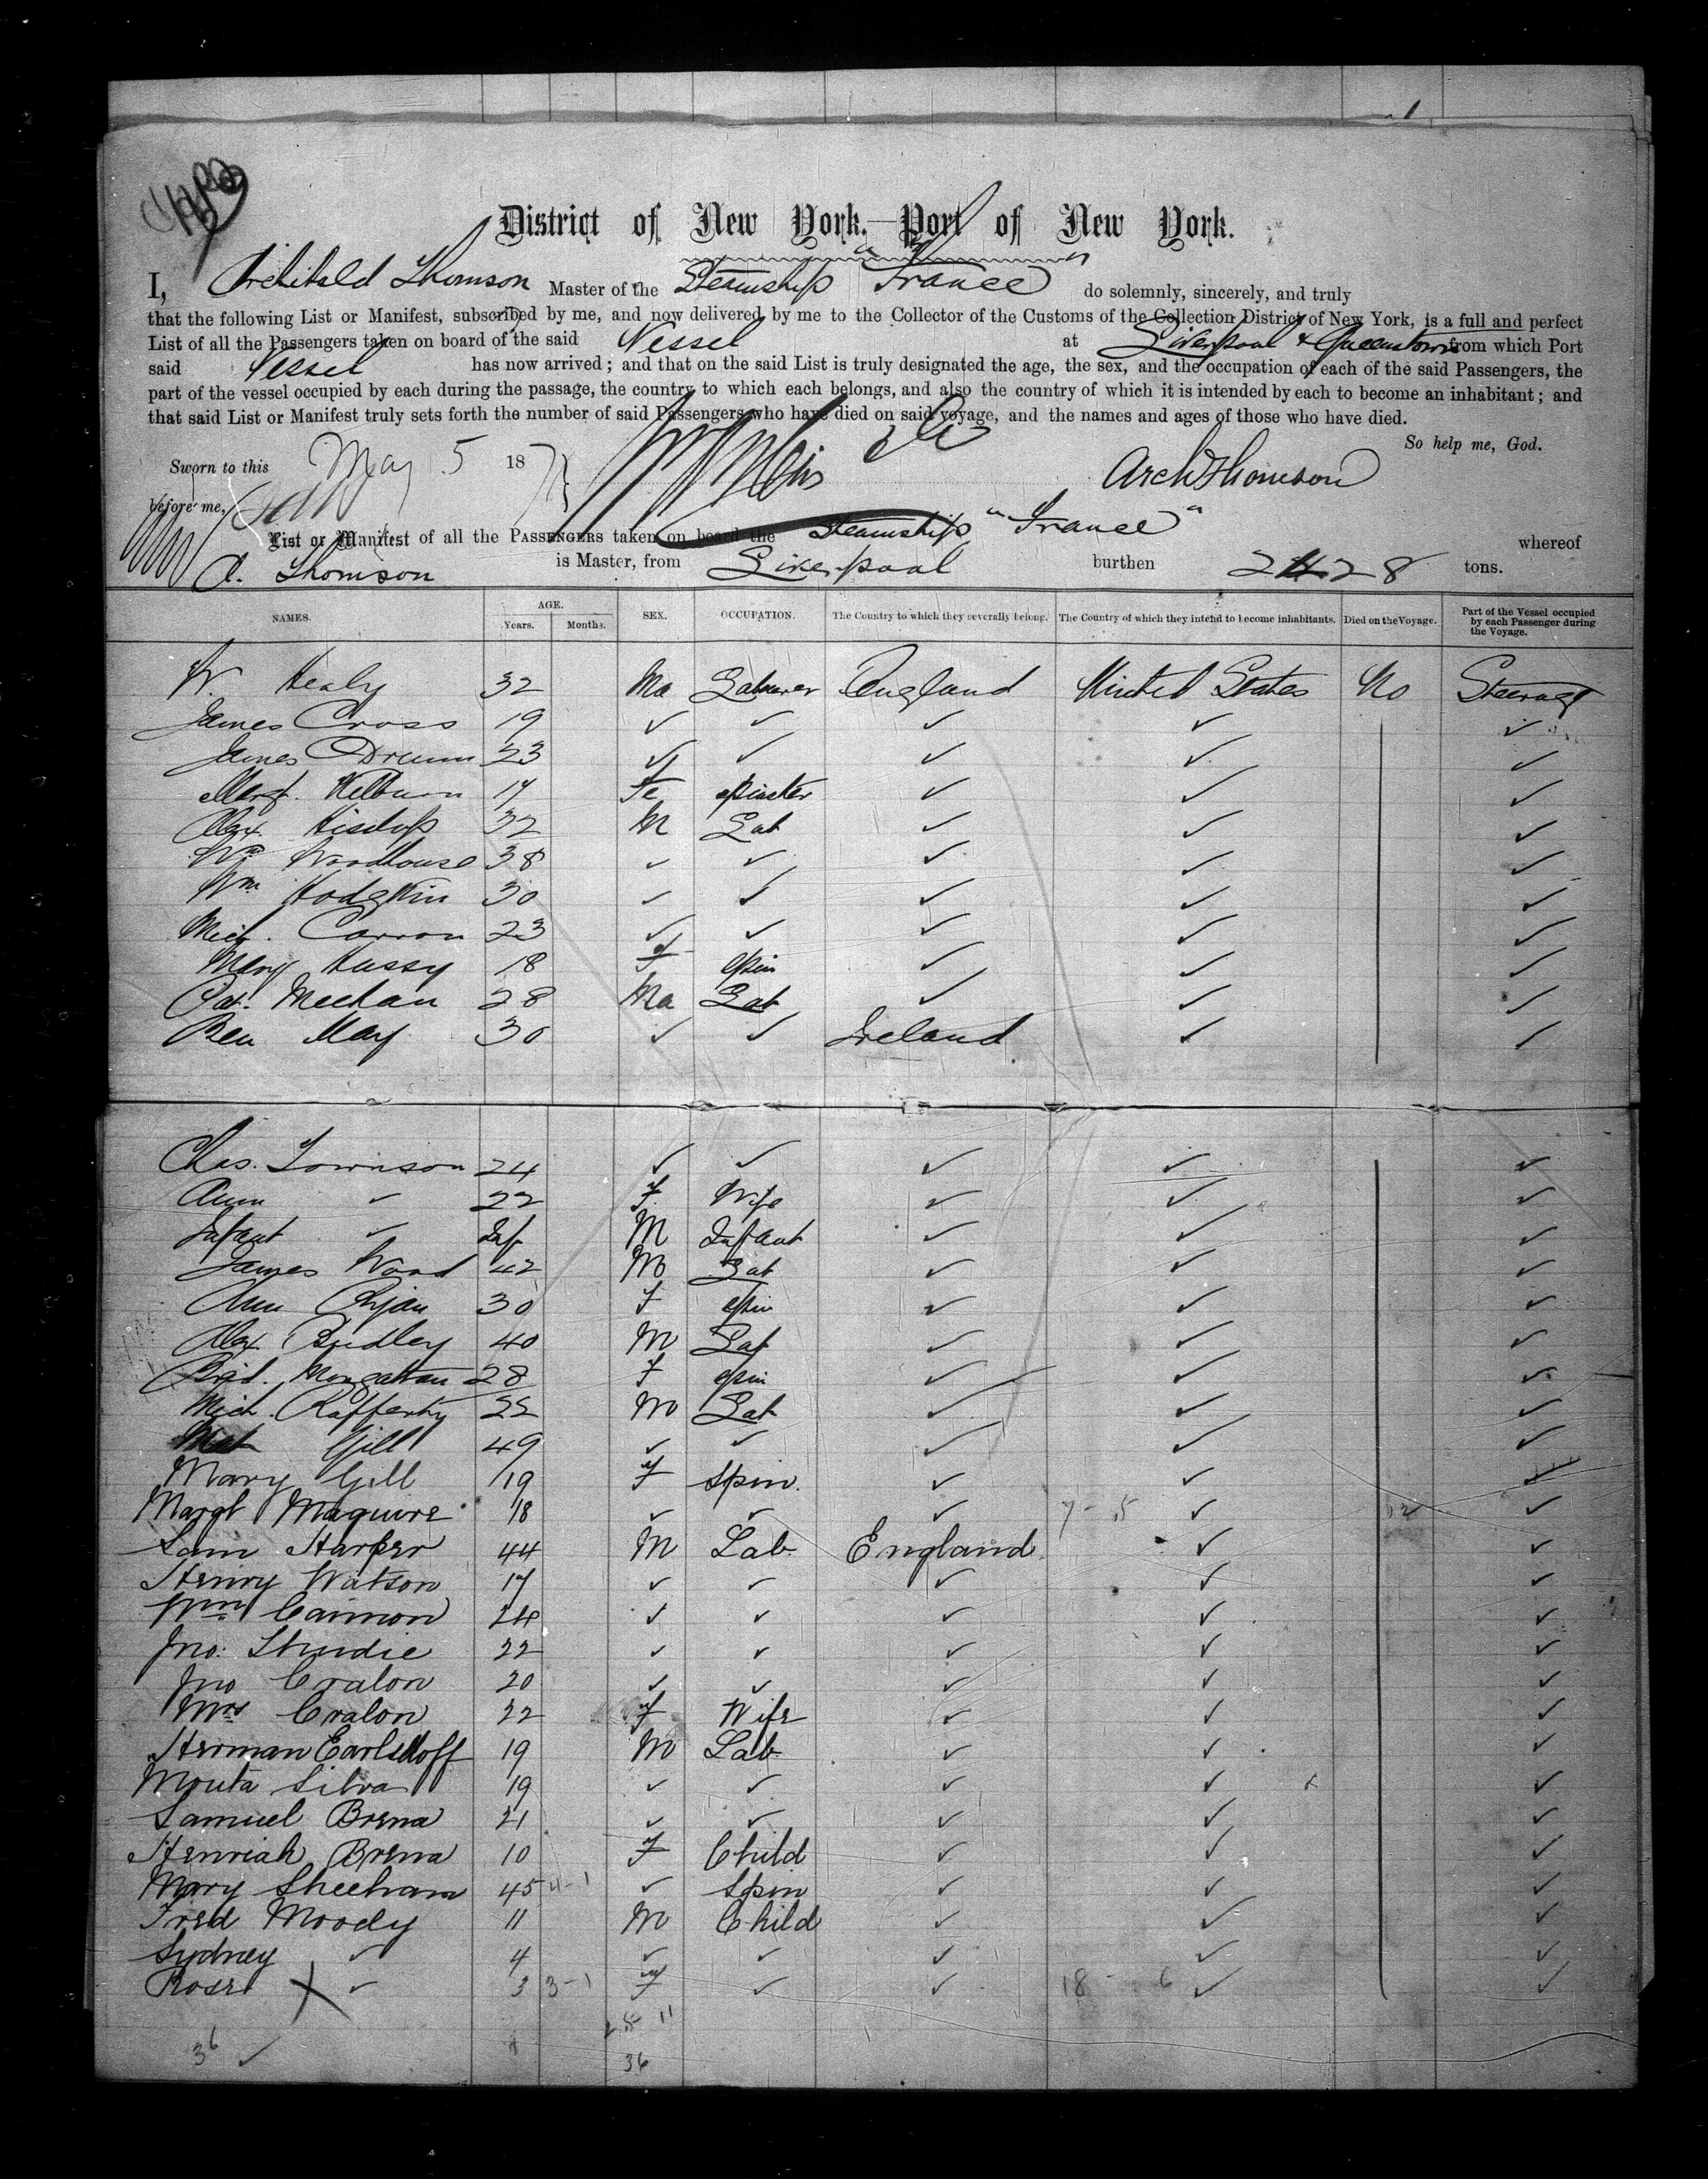 District of New York.—Port of New York.
I, Archibald Thomson Master of the Steamship "France" do solemnly, sincerely, and truly
that the following List or Manifest, subscribed by me, and now delivered by me to the Collector of the Customs of the Collection District of New York, is a full and perfect
List of all the Passengers taken on board of the said Vessel at Liverpool & Queenstown from which Port
said Vessel has now arrived; and that on the said List is truly designated the age, the sex, and the occupation of each of the said Passengers, the
part of the vessel occupied by each during the passage, the country to which each belongs, and also the country of which it is intended by each to become an inhabitant; and
that said List or Manifest truly sets forth the number of said Passengers who have died on said voyage, and the names and ages of those who have died.
So help me, God.
Sworn to this May 5 187
Arch Thomson
before me,
List or Manifest of all the PASSENGERS taken on board the Steamship "France" whereof
A. Thomson is Master, from Liverpool burthen 2428 tons.
NAMES. AGE. Years. Months. SEX. OCCUPATION. The Country to which they severally belong. The Country of which they intend to become inhabitants. Died on the Voyage. Part of the Vessel occupied by each Passenger during the Voyage.
W. Healy 32 Ma Labourer England United States No Steerage
James Cross 19 ✓ ✓ ✓ ✓ ✓
James Drumm 23 ✓ ✓ ✓ ✓ ✓
Margt. Kelburn 17 Fe Spinster ✓ ✓ ✓
Alex. Hislop 32 M Lab ✓ ✓ ✓
Wm Woodhouse 38 ✓ ✓ ✓ ✓ ✓
Wm Hodgkin 30 ✓ ✓ ✓ ✓ ✓
Mich. Carron 23 ✓ ✓ ✓ ✓ ✓
Mary Hussy 18 F Spin ✓ ✓ ✓
Pat. Meehan 28 Ma Lab ✓ ✓ ✓
Ben May 30 ✓ ✓ Ireland ✓ ✓
Chas. Townson 24 ✓ ✓ ✓ ✓ ✓
Ann ✓ 22 F Wife ✓ ✓ ✓
Infant ✓ Inf M Infant ✓ ✓ ✓
James Wood 42 M Lab ✓ ✓ ✓
Ann Ryan 30 F Spin ✓ ✓ ✓
Alex. 40 M Lab ✓ ✓ ✓
Brid. 28 F Spin ✓ ✓ ✓
Mich. Rafferty 22 M Lab ✓ ✓ ✓
Mat Gill 49 ✓ ✓ ✓ ✓ ✓
Mary Gill 19 F Spin. ✓ ✓ ✓
Margt Maguire 18 ✓ ✓ ✓ 7 - 5 ✓ 12 ✓
Sam Harper 44 M Lab. England ✓ ✓
Henry Watson 17 ✓ ✓ ✓ ✓ ✓
Wm Cannon 24 ✓ ✓ ✓ ✓ ✓
Jno. 22 ✓ ✓ ✓ ✓ ✓
Jno Cralon 20 ✓ ✓ ✓ ✓ ✓
Mrs Cralon 22 F Wife ✓ ✓ ✓
Herman Earlsdoff 19 M Lab ✓ ✓ ✓
Mouta Silva 19 ✓ ✓ ✓ ✓ ✓
Samuel Brena 21 ✓ ✓ ✓ ✓ ✓
Henriah Brena 10 F Child ✓ ✓ ✓
Mary Sheeham 45 4-1 ✓ Spin ✓ ✓ ✓
Fred Moody 11 M Child ✓ ✓ ✓
Sydney ✓ 4 ✓ ✓ ✓ ✓ ✓
Rose X ✓ 3 3-1 F ✓ ✓ 18 - 6 ✓ ✓
25 11
36 ✓ 36